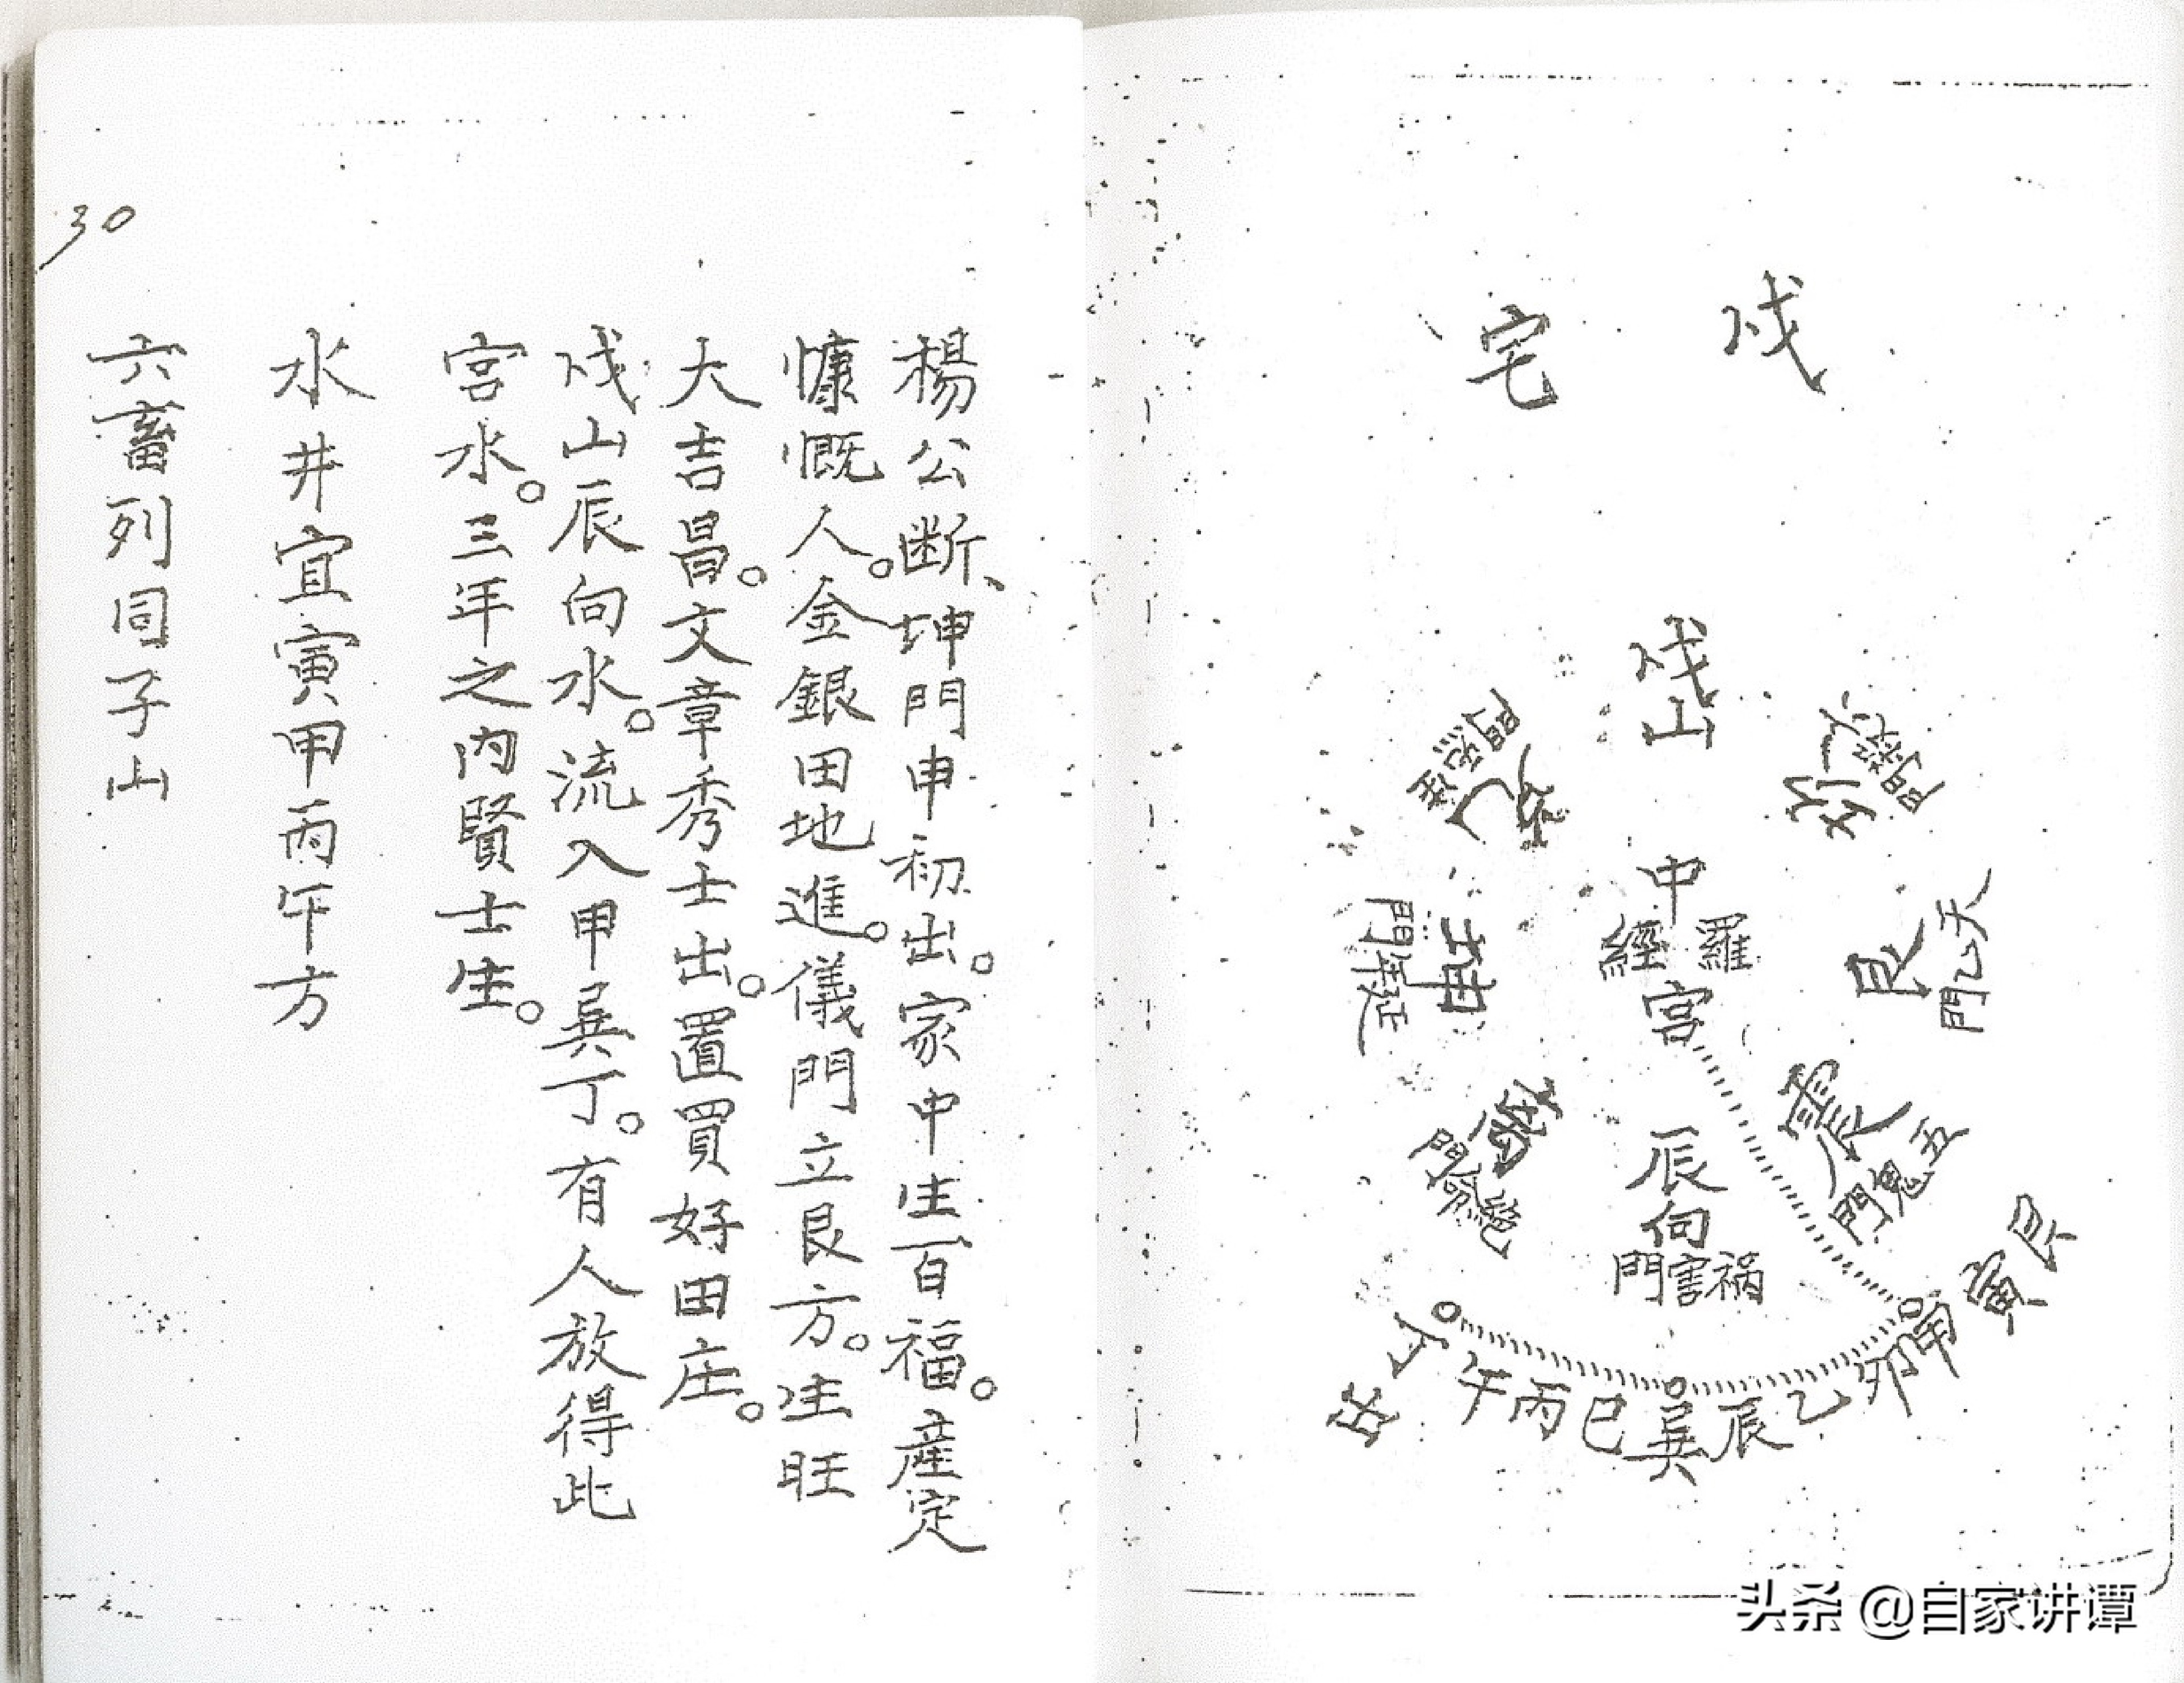 戌宅
戌山
六煞門
乾
生炁門
兌
中宮
羅經
天乙門
艮
延年門
坤
震
五鬼門
離
絕命門
辰向
禍害門
艮
寅
甲
卯
乙
辰
巽
巳
丙
午
丁
楊公断、坤門申初出。家中生百福。産定
慷慨人。金銀田地進。儀門立艮方。生旺
大吉昌。文章秀士出。置買好田庄。
戌山辰向水。流入甲巽丁。有人放得此
宮水。三年之內賢士生。
水井宜寅甲丙午方
六畜列同子山
30
头条 @自家讲谭